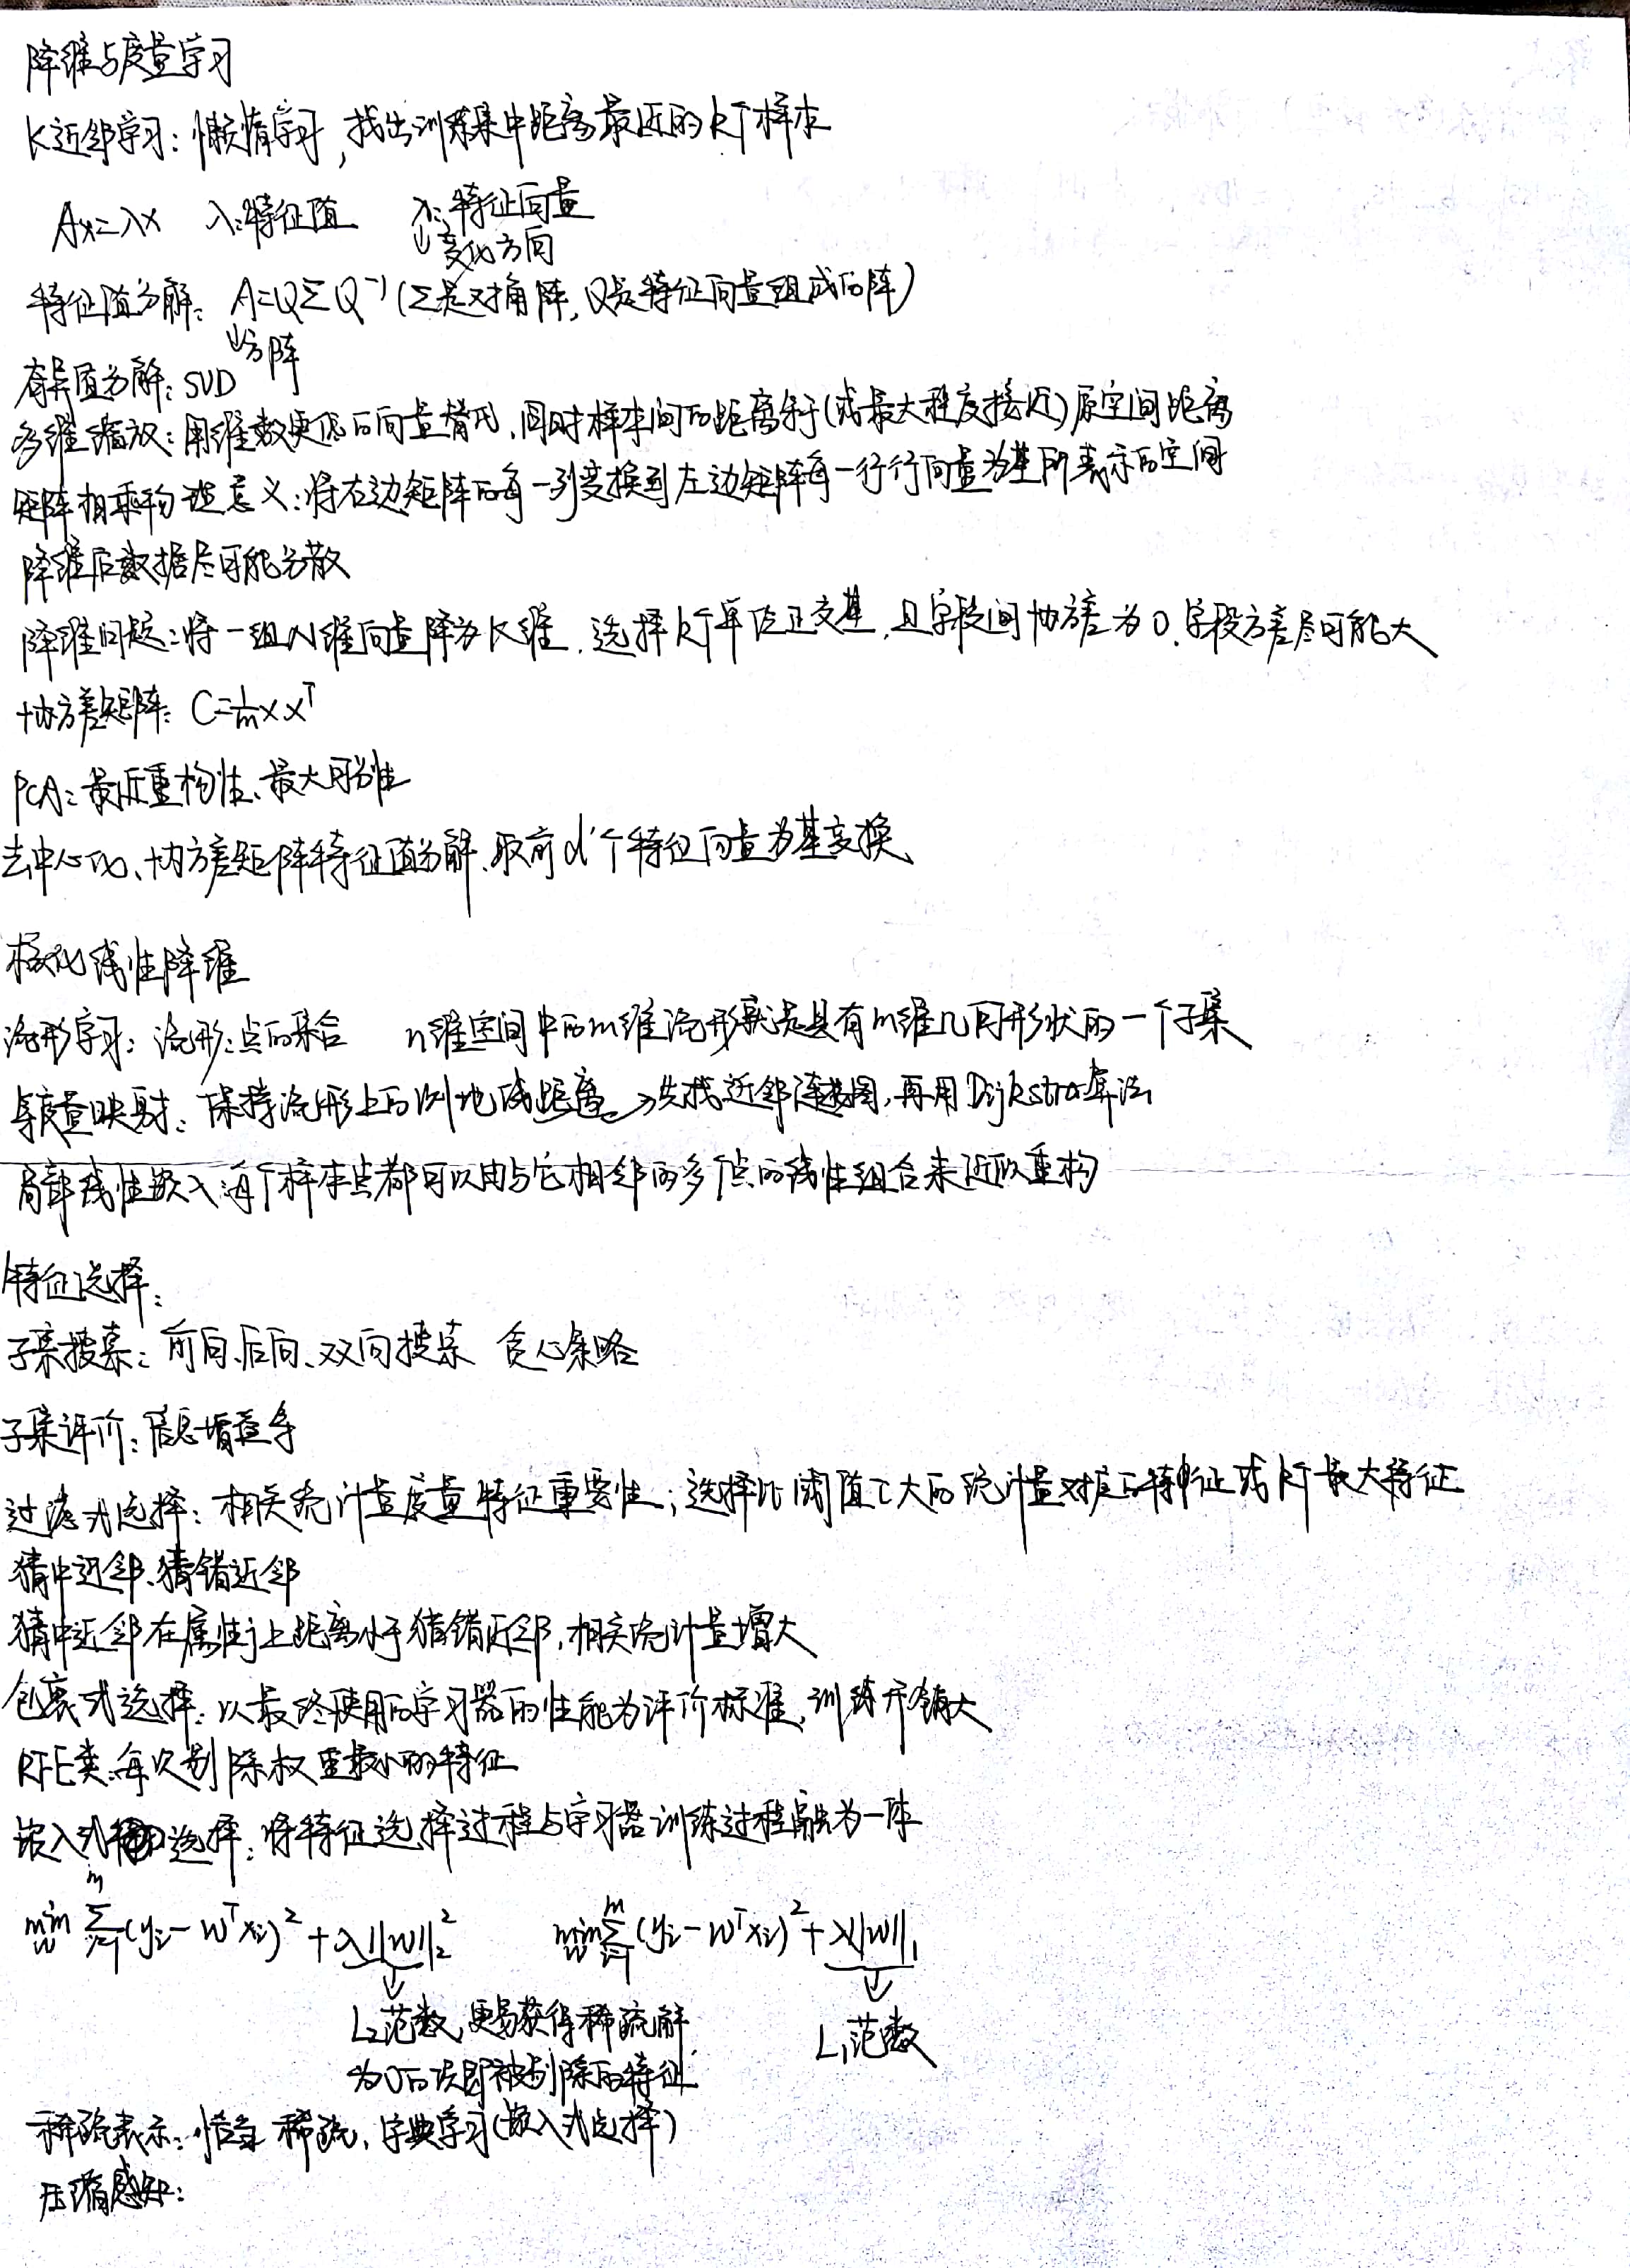 降维与度量学习
K近邻学习：懒惰学习，找出训练集中距离最近的k个样本
Ax=λx  λ：特征值  λ：特征向量
↓变化方向
特征值分解：A=QΣQ⁻¹(Σ是对角阵，Q是特征向量组成的阵)
↓方阵
奇异值分解：SVD
多维缩放：用维数更低的向量替代，同时样本间的距离等于(或最大程度接近)原空间距离
矩阵相乘物理意义：将右边矩阵的每一列变换到左边矩阵每一行行向量为基所表示的空间
降维后数据尽可能分散
降维问题：将一组N维向量降为K维，选择k个单位正交基，且字段间协方差为0，字段方差尽可能大
协方差矩阵：C=1/m XXᵀ
PCA：最近重构性、最大可分性
去中心化、协方差矩阵特征值分解、取前d'个特征向量为基变换
核化线性降维
流形学习：流形：点的集合  n维空间中的m维流形就是具有m维几何形状的一个子集
等度量映射：保持流形上的测地线距离→先找近邻连接图，再用Dijkstra算法
局部线性嵌入：每个样本点都可以由与它相邻的多个点的线性组合来近似重构
特征选择：
子集搜索：前向、后向、双向搜索 贪心策略
子集评价：信息增益等
过滤式选择：相关统计量度量特征重要性；选择比阈值τ大的统计量对应的特征或k个最大特征
猜中近邻、猜错近邻
猜中近邻在属性j上距离小于猜错近邻，相关统计量增大
包裹式选择：以最终使用的学习器的性能为评价标准，训练开销大
RFE类：每次剔除权重最小的特征
嵌入式选择：将特征选择过程与学习器训练过程融为一体
min_w Σ_{i=1}^m (yᵢ-wᵀxᵢ)²+λ||w||₂²  min_w Σ_{i=1}^m (yᵢ-wᵀxᵢ)²+λ||w||₁
↓ ↓
L₂范数，更易获得稀疏解  L₁范数
为0的项即被剔除的特征
稀疏表示：恰当稀疏，字典学习(嵌入式选择)
压缩感知：